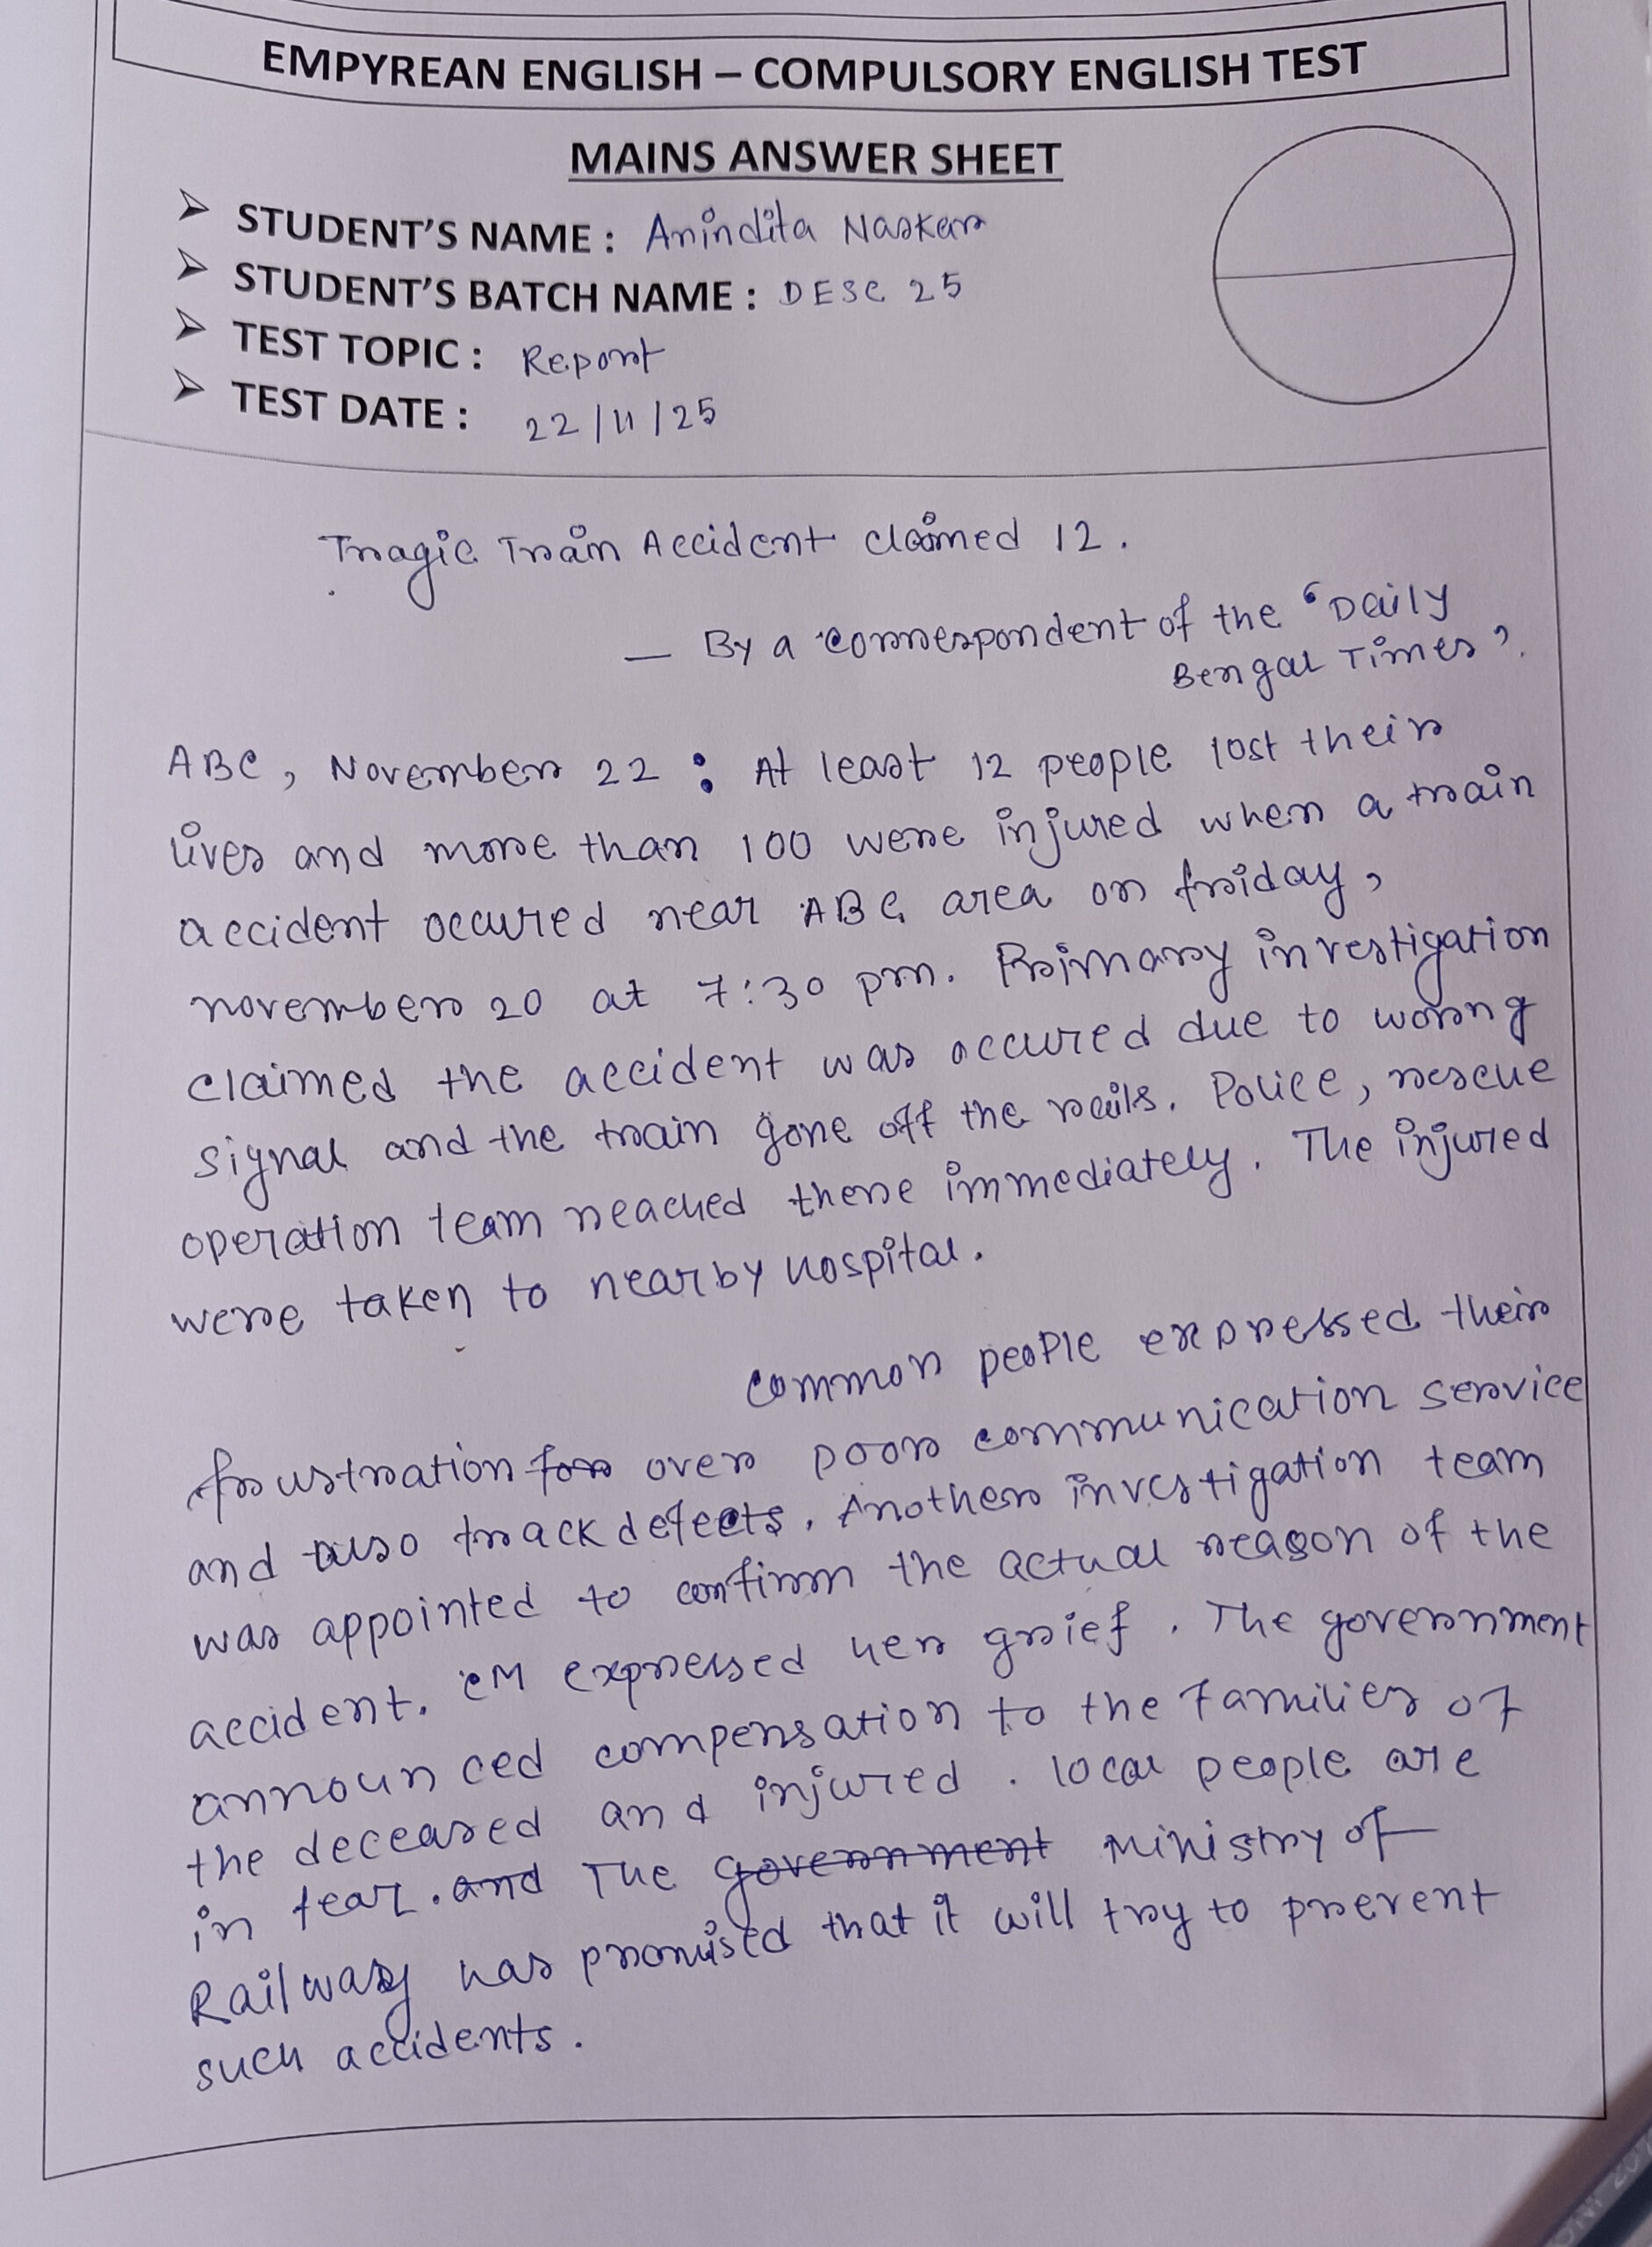 EMPYREAN ENGLISH – COMPULSORY ENGLISH TEST
MAINS ANSWER SHEET
➢ STUDENT'S NAME : Anindita Naskar
➢ STUDENT'S BATCH NAME : DESC 25
➢ TEST TOPIC : Report
➢ TEST DATE : 22/11/25
Tragic Train Accident claimed 12.
— By a correspondent of the 'Daily
Bengal Times'.
ABC, November 22 : At least 12 people lost their
lives and more than 100 were injured when a train
accident occured near ABC area on friday,
november 20 at 7:30 pm. Primary investigation
claimed the accident was occured due to worong
signal and the train gone off the rails. Police, rescue
operation team reached there immediately. The injured
were taken to nearby hospital.
Common people expressed their
frustration for over poor communication service
and also track defects. Another investigation team
was appointed to confirm the actual reason of the
accident. CM expressed her grief. The government
announced compensation to the families of
the deceased and injured. local people are
in fear. and The government Ministry of
Railway has promised that it will try to prevent
such accidents.